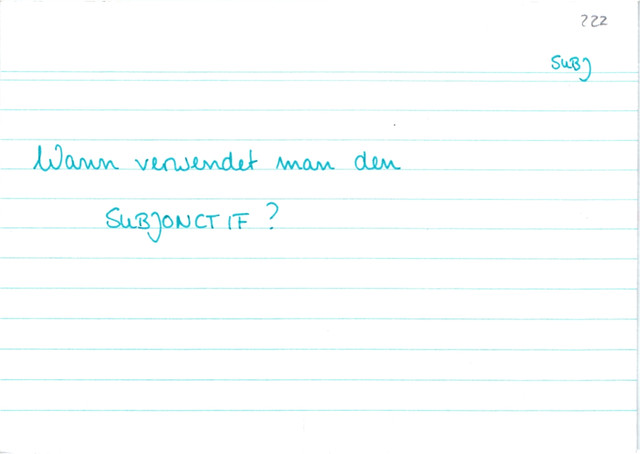 222
SUBJ
Wann verwendet man den
SUBJONCTIF?